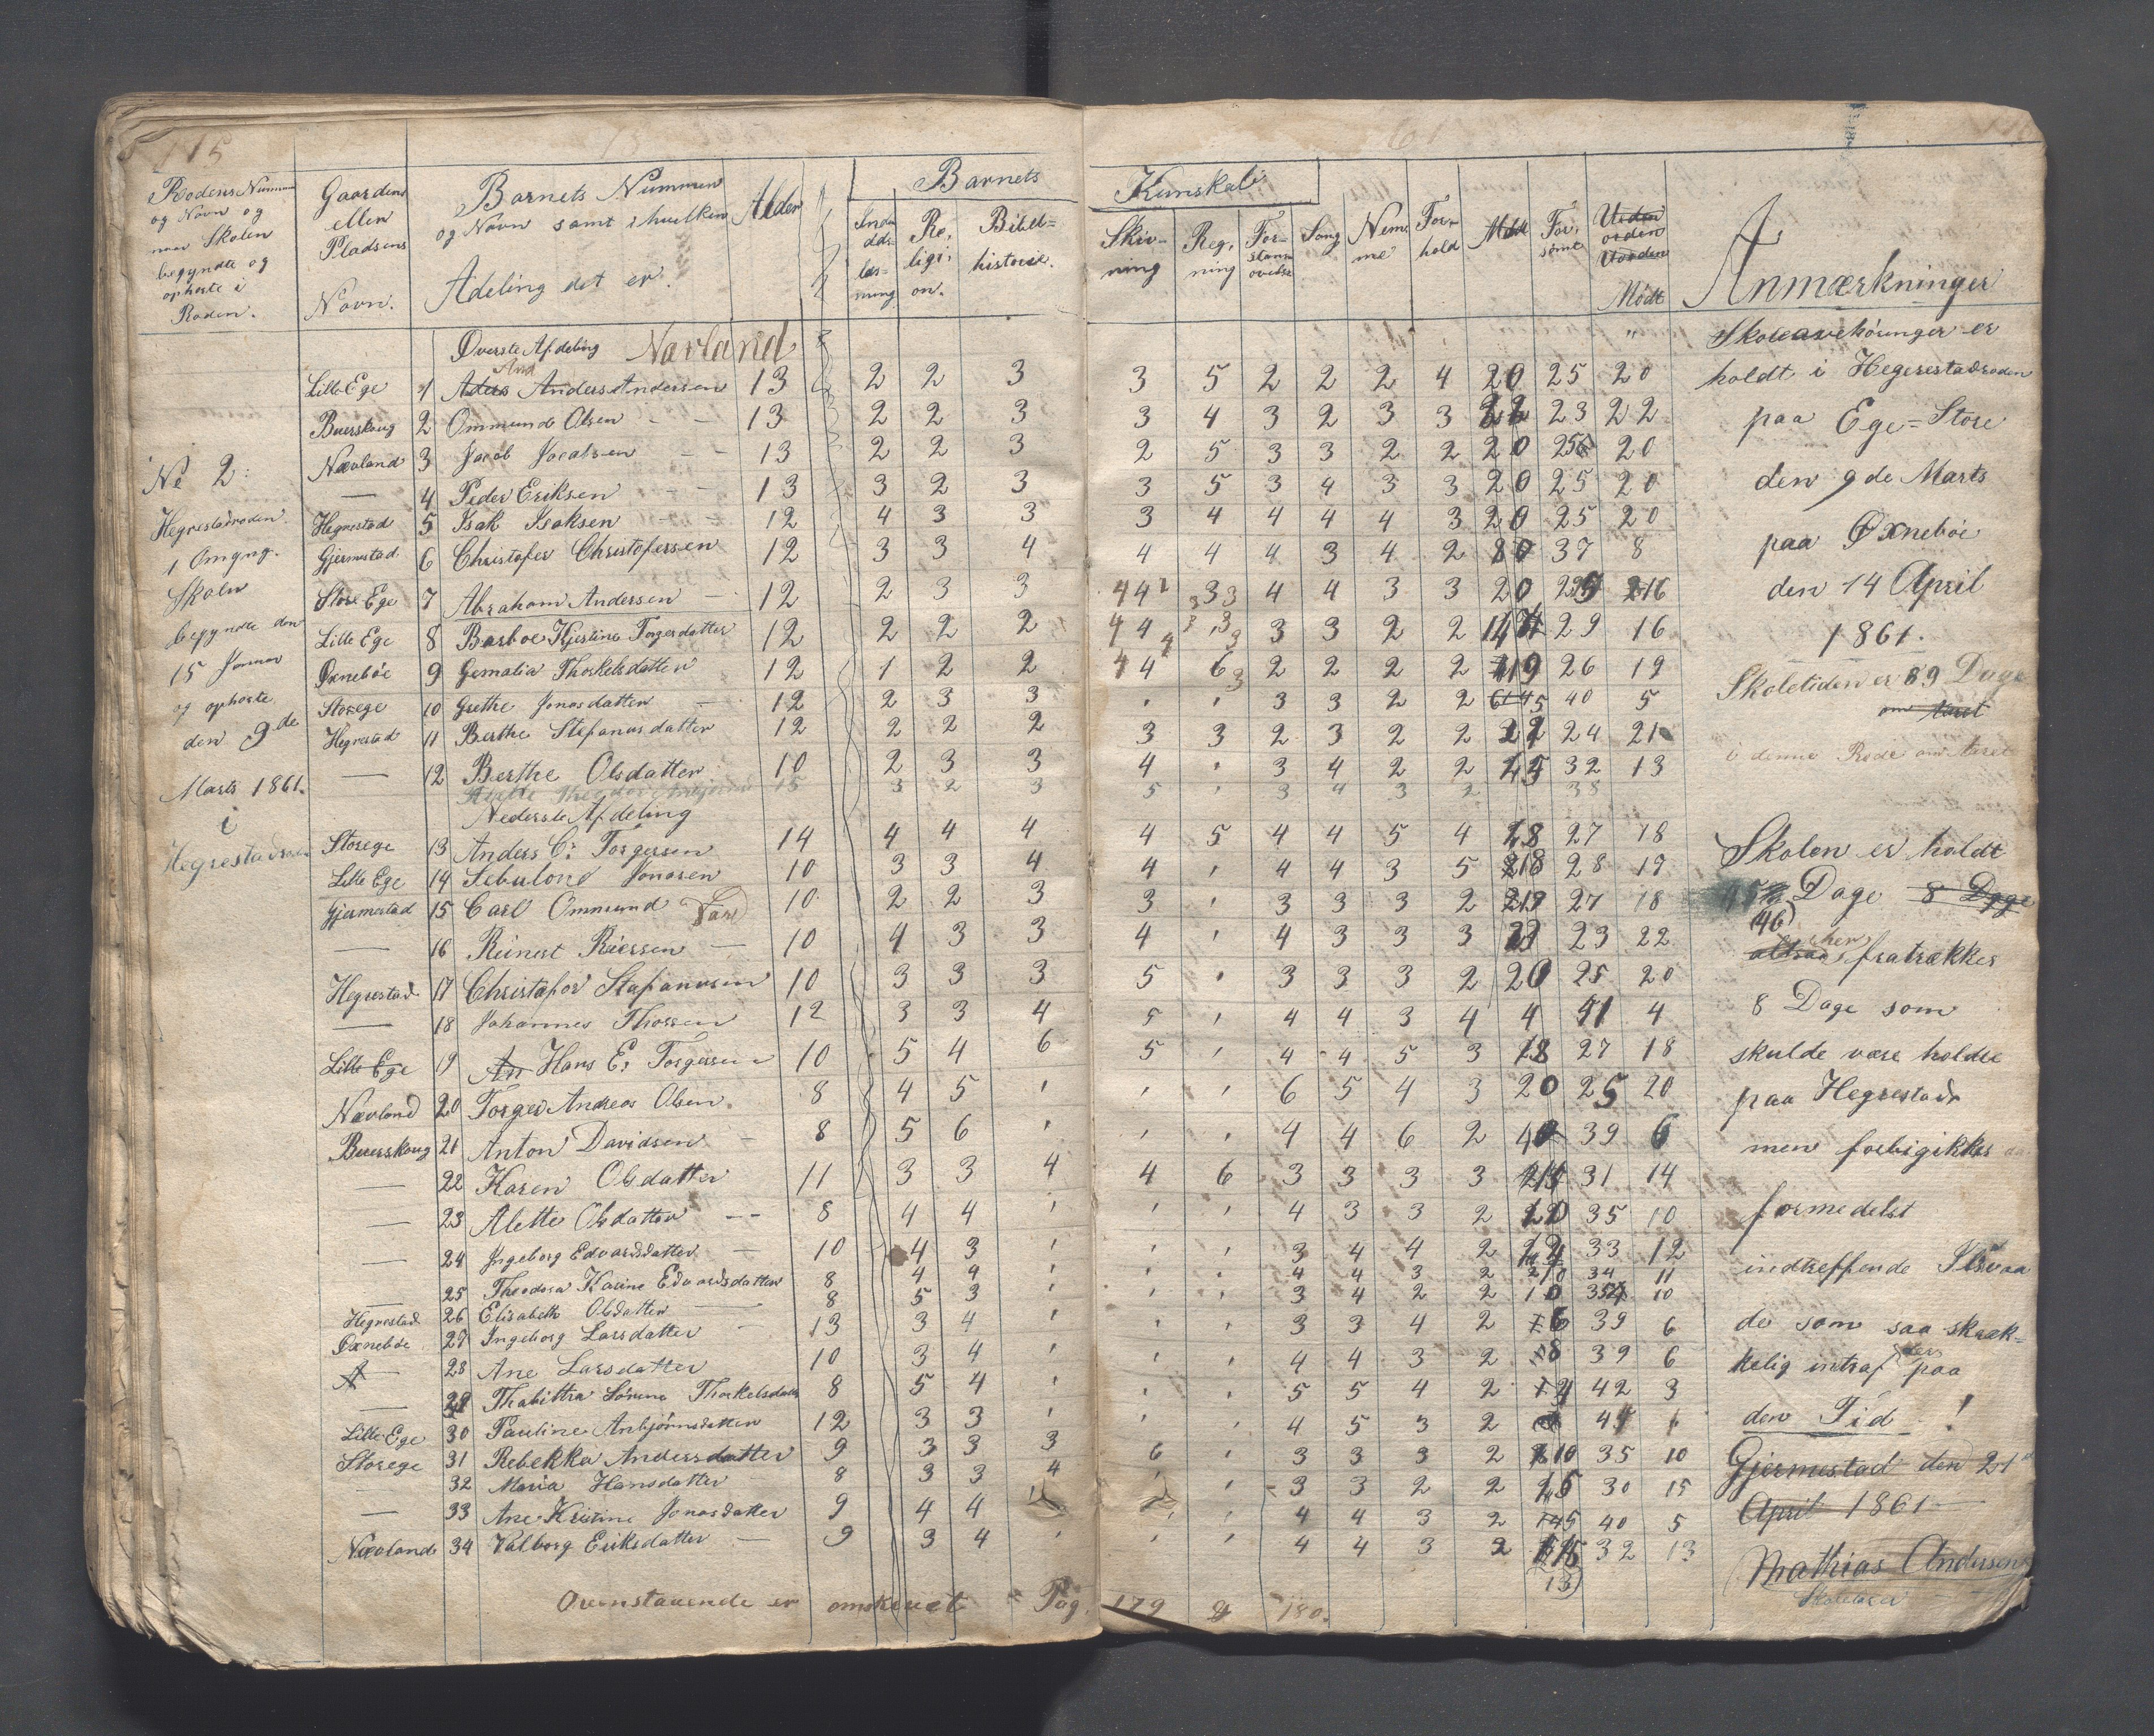 115
Rodens Nummer og Navn og naar Skolen begyndte og ophørte i Roden.
Gaardens eller Pladsens Navn.
Barnets Nummer og Navn samt i hvilken Afdeling det er.
Alder
Barnets Kunskab
Religion.
Bibelhistorie.
Skrivning
Regning
Sang
Nemme
Forhold
Mødt
Forsømt
Mødt
Anmærkninger
Øverste Afdeling Navland
Lille Ege 1 Anders Andersen 13 2 2 3 3 5 2 2 2 4 20 25 20
Buerskoug 2 Ommund Olsen - - 13 2 2 3 3 4 3 2 3 3 22 23 22
Nævland 3 Jacob Jacobsen - - 13 2 2 3 2 5 3 3 2 2 20 25 20
— 4 Peder Eriksen - - 13 3 2 3 3 5 3 4 3 3 20 25 20
Hegrestad 5 Isak Isaksen - - 12 4 3 3 3 4 4 4 4 3 20 25 20
Gjermestad 6 Christofer Christofersen 12 3 3 4 4 4 4 3 4 2 8 37 8
Store Ege 7 Abraham Andersen - 12 2 3 3 4 3 4 4 3 3 20 16
Lille Ege 8 Barboe Kjestine Torgersdatter 12 2 2 2 4 3 3 3 2 2 29 16
Øxnebøe 9 Gemalia Thorkelsdatter 12 1 2 2 4 6 2 2 2 2 19 26 19
Storege 10 Grethe Jonasdatter - 12 2 3 3 3 3 2 2 5 40 5
Hegrestad 11 Berthe Stefanusdatter 12 2 2 2 3 3 2 3 2 2 24 21
— 12 Berthe Olsdatter 10 2 3 3 4 3 4 2 2 32 13
15 3 2 3 5 3 4 3 2 38
Nederste Afdeling
Storege 13 Anders C. Torgersen 14 4 4 4 4 5 4 4 5 4 18 27 18
Lille Ege 14 Sebulond Jonasen 10 3 3 4 4 4 4 3 5 18 28 17
Gjermestad 15 Carl Ommund 10 2 2 3 3 3 3 3 2 27 18
— 16 Reinert Reiersen — 10 4 3 3 4 4 3 3 3 23 22
Hegrestad 17 Christofor Stefanusen 10 3 3 3 5 3 3 3 2 20 25 20
— 18 Johannes Thorsen 12 3 3 4 5 4 4 3 4 4 41 4
Lille Ege 19 Hans E. Torgersen 10 5 4 6 5 4 4 5 3 18 27 18
Nævland 20 Torger Andreas Olsen. 8 4 5 6 5 4 3 20 25 20
Buerskoug 21 Anton Davidsen - 8 5 6 4 4 6 2 39 6
— 22 Karen Olsdatter 11 3 3 4 4 6 3 3 3 3 14 31 14
— 23 Alette Olsdatter -- 8 4 4 4 3 3 2 10 35 10
— 24 Ingeborg Edvardsdatter — 10 4 3 3 4 4 2 12 33 12
— 25 Theodora Karine Edvardsdatter 8 4 4 4 4 3 2 34 11
Hegrestad 26 Elisabeth Olsdatter — 8 5 3 3 4 2 2 10 35 10
Øxnebøe 27 Ingeborg Larsdatter — 13 3 4 3 3 4 2 6 39 6
— 28 Ane Larsdatter 10 3 4 4 4 3 2 8 39 6
— 29 Thabittra Sørine Thorkelsdatter 8 5 4 5 5 4 2 42 3
Lille Ege 30 Pauline Anbjørnsdatter 12 3 3 4 5 3 2
Storege 31 Rebekka Andersdatter 9 3 3 3 6 3 3 3 2 10 35 10
— 32 Maria Hansdatter 8 3 3 4 3 3 2 2 15 30 15
— 33 Ane Kristine Jonasdatter 9 4 4 4 4 3 2 5 40 5
Nævland 34 Valborg Eriksdatter — 9 3 4 4 4 3 2 32 13
(13)
Ovenstaaende er omskrevet Pag. 179 & 180.
No 2:
Hegrestadroden.
1 Omgng.
Skolen
begyndte den
15 Januar
og ophørte
den 9de
Marts 1861.
i
Hegrestadroden
Skoleavehøringer er
holdt i Hegerestadroden
paa Ege=Store
den 9de Marts
paa Øxnebøe
den 14 April
1861.
Skoletiden er 89 Dage
i denne Rode om Aaret
Skolen er holdt
Dage 8 Dage
(46)
fratrækkes
8 Dage som
skulde være holdte
paa Hegrestad
men forbigikkes
formedelst
indtreffende
de som saa skræk-
kelig intraf paa
den Tid !
Gjermestad den 21
April 1861
Mathias Andersen
Skolelærer